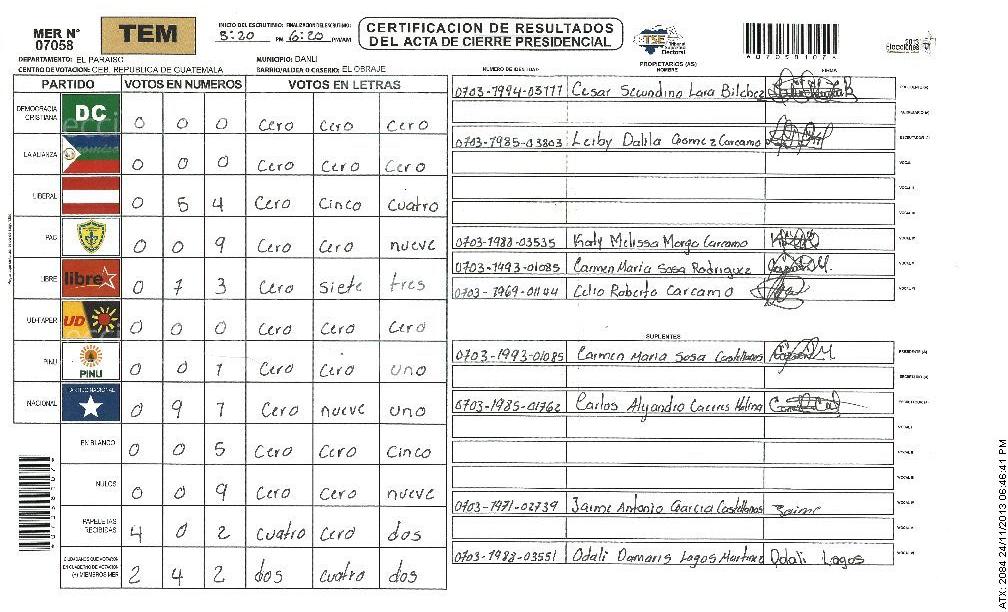 MER N° 07058
TEM
INICIO DEL ESCRUTINIO: FINALIZACION DEL ESCRUTINIO:
PM 6:20 PM/AM
CERTIFICACION DE RESULTADOS
DEL ACTA DE CIERRE PRESIDENCIAL
TSE
Tribunal Supremo Electoral
2013
elecciones
DEPARTAMENTO: EL PARAISO
MUNICIPIO: DANLI
CENTRO DE VOTACION: CEB. REPUBLICA DE GUATEMALA
BARRIO/ALDEA O CASERIO: EL OBRAJE
NUMERO DE IDENTIDAD
PROPIETARIOS (AS)
NOMBRE
FIRMA
PARTIDO VOTOS EN NUMEROS VOTOS EN LETRAS
DEMOCRACIA CRISTIANA DC 0 0 0 Cero Cero Cero
LA ALIANZA 0 0 0 Cero Cero Cero
LIBERAL 0 5 4 Cero Cinco Cuatro
PAC 0 0 9 Cero Cero nueve
LIBRE libre 0 7 3 Cero siete tres
UD-FAPER UD 0 0 0 Cero Cero Cero
PINU PINU 0 0 1 Cero Cero uno
NACIONAL PARTIDO NACIONAL 0 9 1 Cero nueve uno
EN BLANCO 0 0 5 Cero Cero Cinco
NULOS 0 0 9 Cero Cero nueve
PAPELETAS RECIBIDAS 4 0 2 cuatro cero dos
CIUDADANOS QUE VOTARON EN CUADERNO DE VOTACION (+) MIEMBROS MER 2 4 2 dos cuatro dos
0703-1994-03111 Cesar Secundino Lara Bilchez
0703-1985-03803 Leiby Dalila Gomez Carcamo
0703-1988-03535 Karly Melissa Morga Carcamo
0703-1493-01085 Carmen Maria Sosa Rodriguez
0703-1969-01144 Celio Roberto Carcamo
SUPLENTES
0703-1993-01085 Carmen Maria Sosa Castellanos
PRESIDENTE (A)
SECRETARIO (A)
0703-1985-01762 Carlos Alejandro Caceres Molina
0703-1971-02739 Jaime Antonio Garcia Castellanos Jaime
0703-1983-03551 Odali Damaris Lagos Martinez Odali Lagos
ATX: 2084 24/11/2013 06:46:41 PM